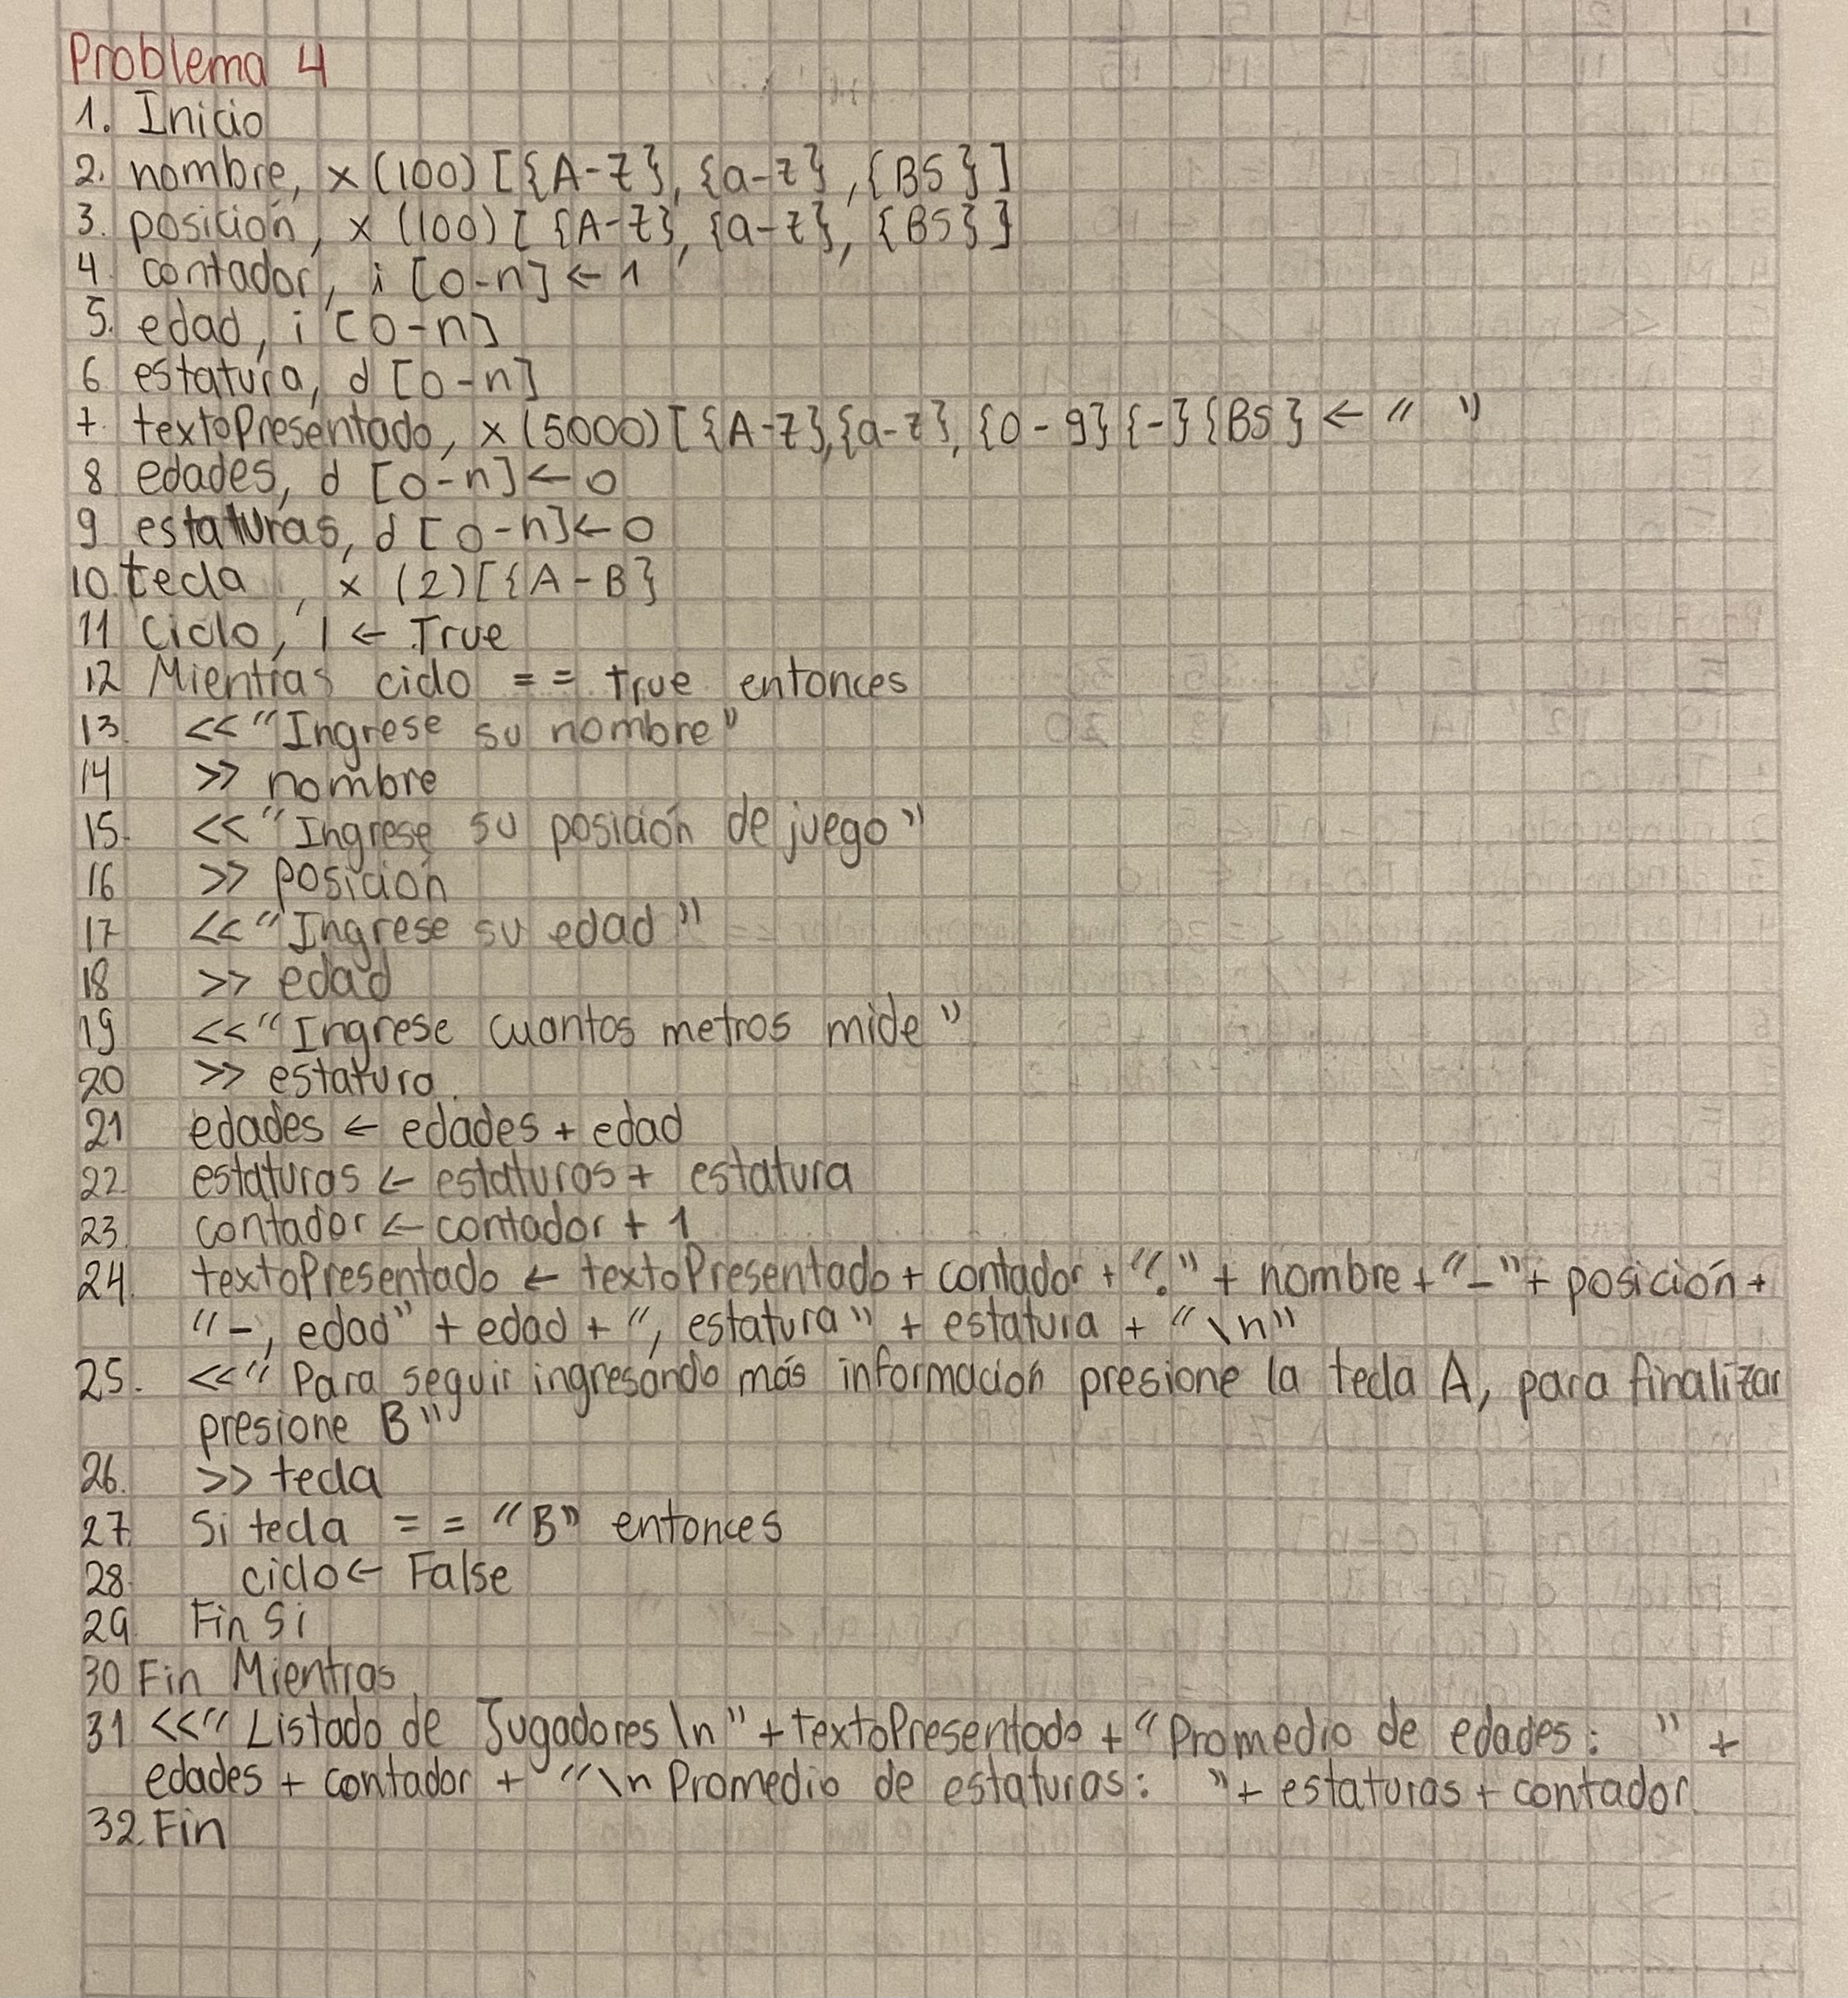 Problema 4
1. Inicio
2. nombre, x (100) [{A-Z}, {a-z}, {BS}]
3. posición, x (100) [ {A-Z}, {a-z}, {BS}]
4 contador, i [0-n] ← 1
5. edad, i [0-n]
6 estatura, d [0-n]
7. textoPresentado, x (5000) [ {A-Z}, {a-z}, {0-9} {-} {BS} ← " "
8 edades, d [0-n] ← 0
9 estaturas, d [0-n] ← 0
10. tecla , x (2) [ {A-B}
11 Ciclo, l ← True
12 Mientras ciclo == true entonces
13. << "Ingrese su nombre"
14 >> nombre
15. << "Ingrese su posición de juego"
16 >> posición
17 << "Ingrese su edad"
18 >> edad
19 << "Ingrese cuantos metros mide"
20 >> estatura.
21 edades ← edades + edad
22. estaturas ← estaturas + estatura
23. contador ← contador + 1
24. textoPresentado ← textoPresentado + contador + "." + nombre + "-" + posición +
"-, edad" + edad + ", estatura" + estatura + "\n"
25. << "Para seguir ingresando más información presione la tecla A, para finalizar
presione B"
26. >> tecla
27. Si tecla == "B" entonces
28. ciclo ← False
29. Fin Si
30 Fin Mientras
31 << "Listado de Jugadores \n" + textoPresentado + "Promedio de edades: " +
edades + contador + "\n Promedio de estaturas: " + estaturas + contador
32. Fin